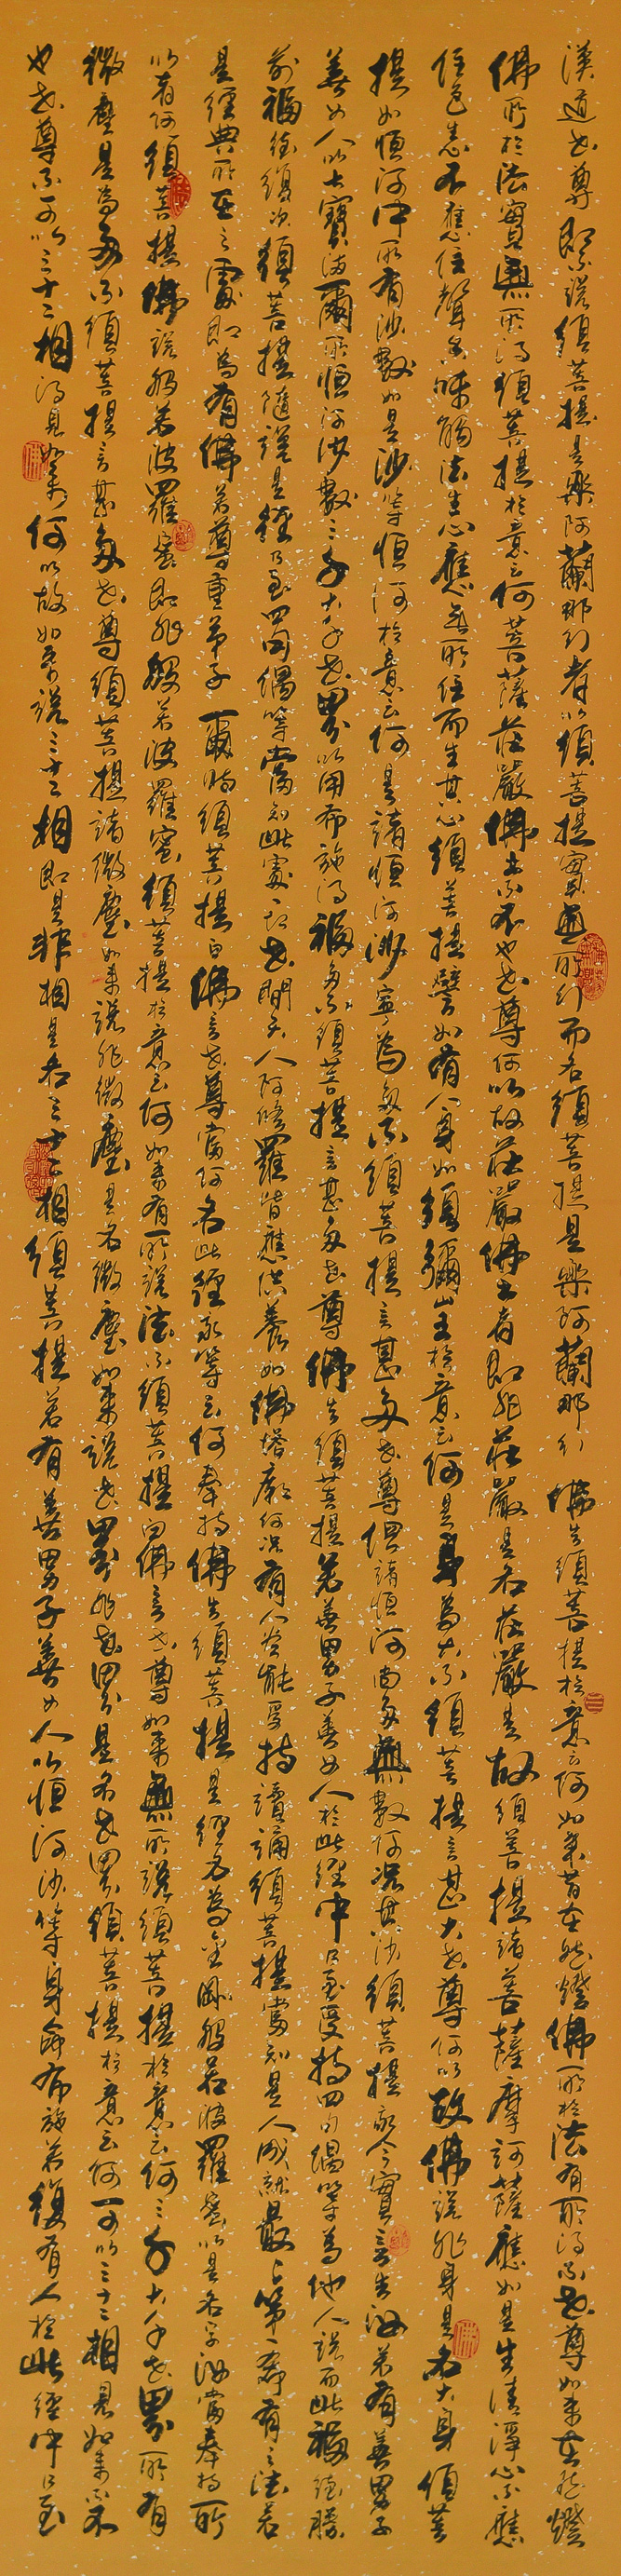 漢道世尊即不說須菩提是樂阿蘭那行者以須菩提實無所行而名須菩提是樂阿蘭那行佛告須菩提於意云何如來昔在然燈佛所於法有所得不世尊如來在然燈
佛所於法實無所得須菩提於意云何菩薩莊嚴佛土不不也世尊何以故莊嚴佛土者即非莊嚴是名莊嚴是故須菩提諸菩薩摩訶薩應如是生清淨心不應
住色生心不應住聲香味觸法生心應無所住而生其心須菩提譬如有人身如須彌山王於意云何是身為大不須菩提言甚大世尊何以故佛說非身是名大身須菩
提如恒河中所有沙數如是沙等恒河於意云何是諸恒河沙寧為多不須菩提言甚多世尊但諸恒河尚多無數何況其沙須菩提我今實言告汝若有善男子
善女人以七寶滿爾所恒河沙數三千大千世界以用布施得福多不須菩提言甚多世尊佛告須菩提若善男子善女人於此經中乃至受持四句偈等為他人說而此福德勝
前福德復次須菩提隨說是經乃至四句偈等當知此處一切世間天人阿修羅皆應供養如佛塔廟何況有人盡能受持讀誦須菩提當知是人成就最上第一希有之法若
是經典所在之處即為有佛若尊重弟子爾時須菩提白佛言世尊當何名此經我等云何奉持佛告須菩提是經名為金剛般若波羅蜜以是名字汝當奉持所
以者何須菩提佛說般若波羅蜜即非般若波羅蜜須菩提於意云何如來有所說法不須菩提白佛言世尊如來無所說須菩提於意云何三千大千世界所有
微塵是為多不須菩提言甚多世尊須菩提諸微塵如來說非微塵是名微塵如來說世界非世界是名世界須菩提於意云何可以三十二相見如來不不
也世尊不可以三十二相得見如來何以故如來說三十二相即是非相是名三十二相須菩提若有善男子善女人以恒河沙等身命布施若復有人於此經中乃至